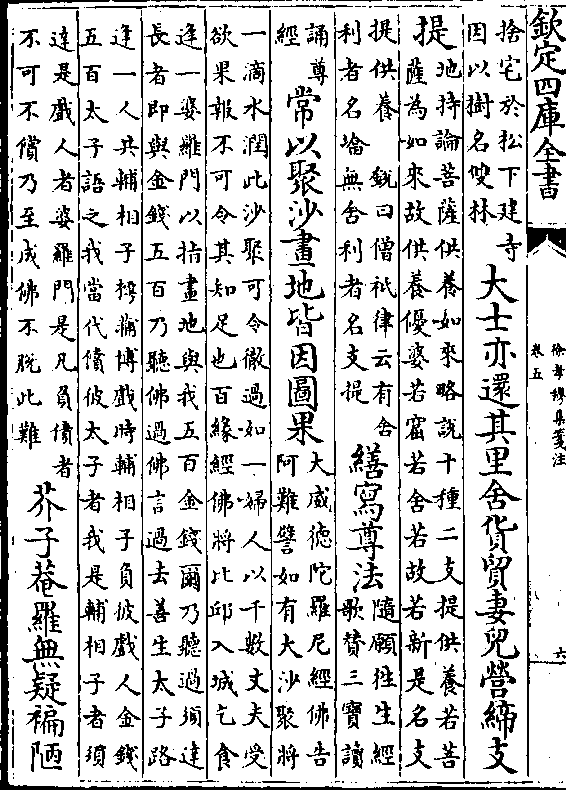 欽定四庫全書
徐孝穆集箋注
卷五
六
捨宅於松下建寺
因以樹名雙林
大士亦還其里舍貨貿妻兒營締支
提
地持論菩薩供養如來略說十種二支提供養若菩
薩為如來故供養優婆若窟若舍若故若新是名支
提供養
銑曰僧祇律云有舍
利者名墖無舍利者名支提
繕寫尊法
隨願往生經
歌賛三寶讀
誦尊
經
常以聚沙畫地皆因圖果
大威德陀羅尼經佛告
阿難譬如有大沙聚將
一滴水潤此沙聚可令徹過如一婦人以千數丈夫受
欲果報不可令其知足也百緣經佛將比邱入城乞食
逢一婆羅門以指畫地與我五百金錢爾乃聽過須達
長者即與金錢五百乃聽佛過佛言過去善生太子路
逢一人共輔相子樗蒲博戲時輔相子負彼戲人金錢
五百太子語之我當代償彼太子者我是輔相子者須
達是戲人者婆羅門是凡負債者
不可不償乃至成佛不脫此難
芥子菴羅無疑褊陋